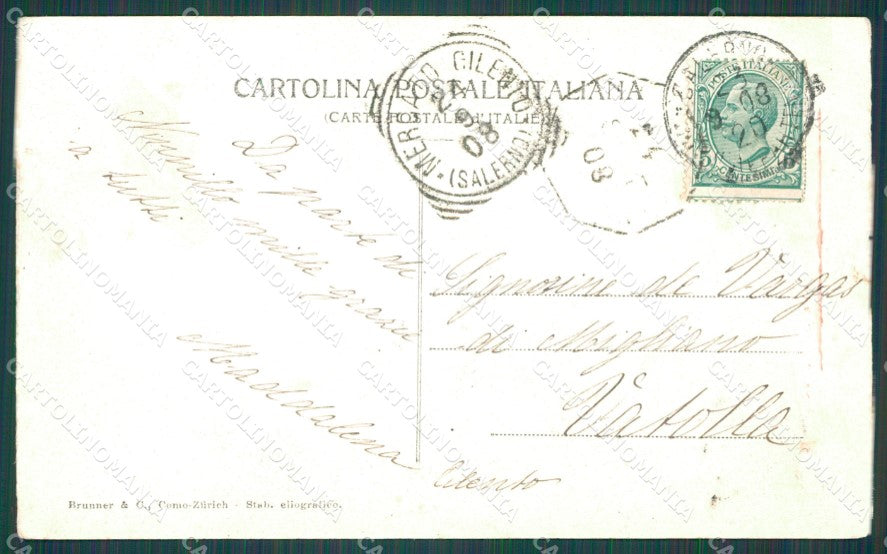 CARTOLINA POSTALE ITALIANA
(CARTE POSTALE D'ITALIE)
MERCATO CILENTO (SALERNO)
08
08
POSTE ITALIANE
CENTESIMI
Da parte di
Nunzio mille grazie
a tutti
Maddalena
Signorine de Vargas
di Migliano
Vatolla
Cilento
Brunner & C., Como-Zürich - Stab. eliografico.
CARTOLINOMANIA